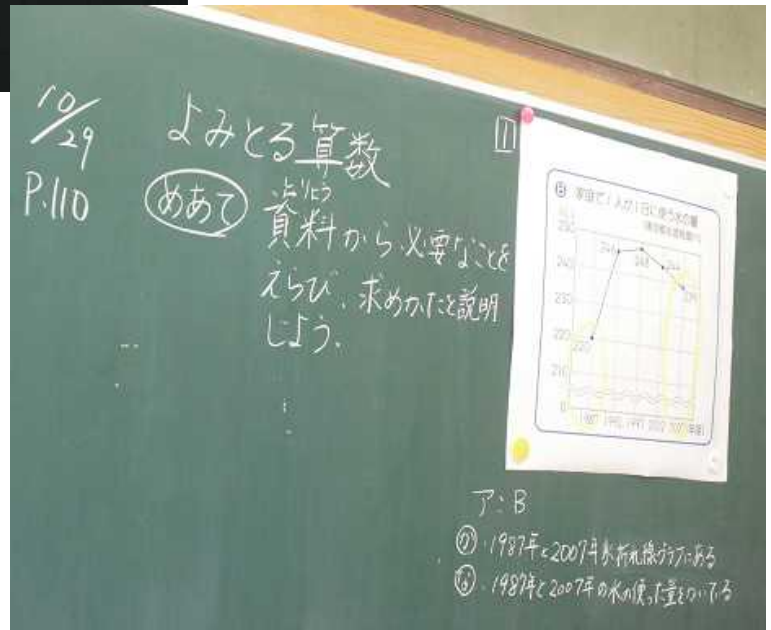 10/29
P.110
よみとる算数
めあて
しりょう
資料から、必要なことを
えらび、求めかたを説明
しよう。
1
B 家庭で1人が1日に使う水の量
250
240
230
220
210
0
220
246
248
244
1987 1992 1997 2002 2007 (年度)
ア:B
か ・1987年と2007年が折れ線グラフにある
な ・1987年と2007年の水の使った量